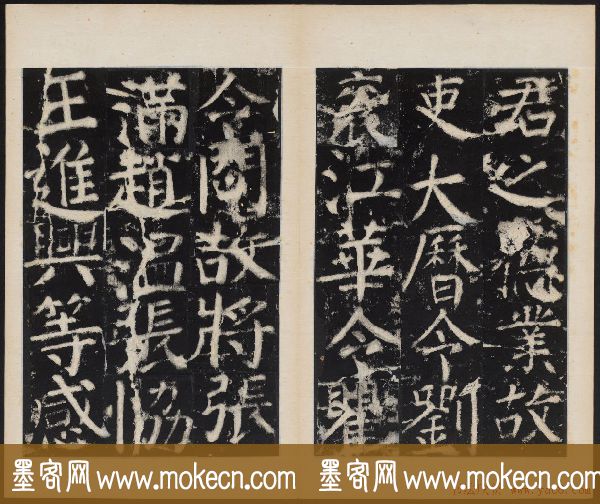 君之德業故
吏大曆令劉
袞江華令瞿
令問故將張
滿趙溫張協
王進興等感
墨客网 www.mokecn.com 墨客网 www.mokecn.com